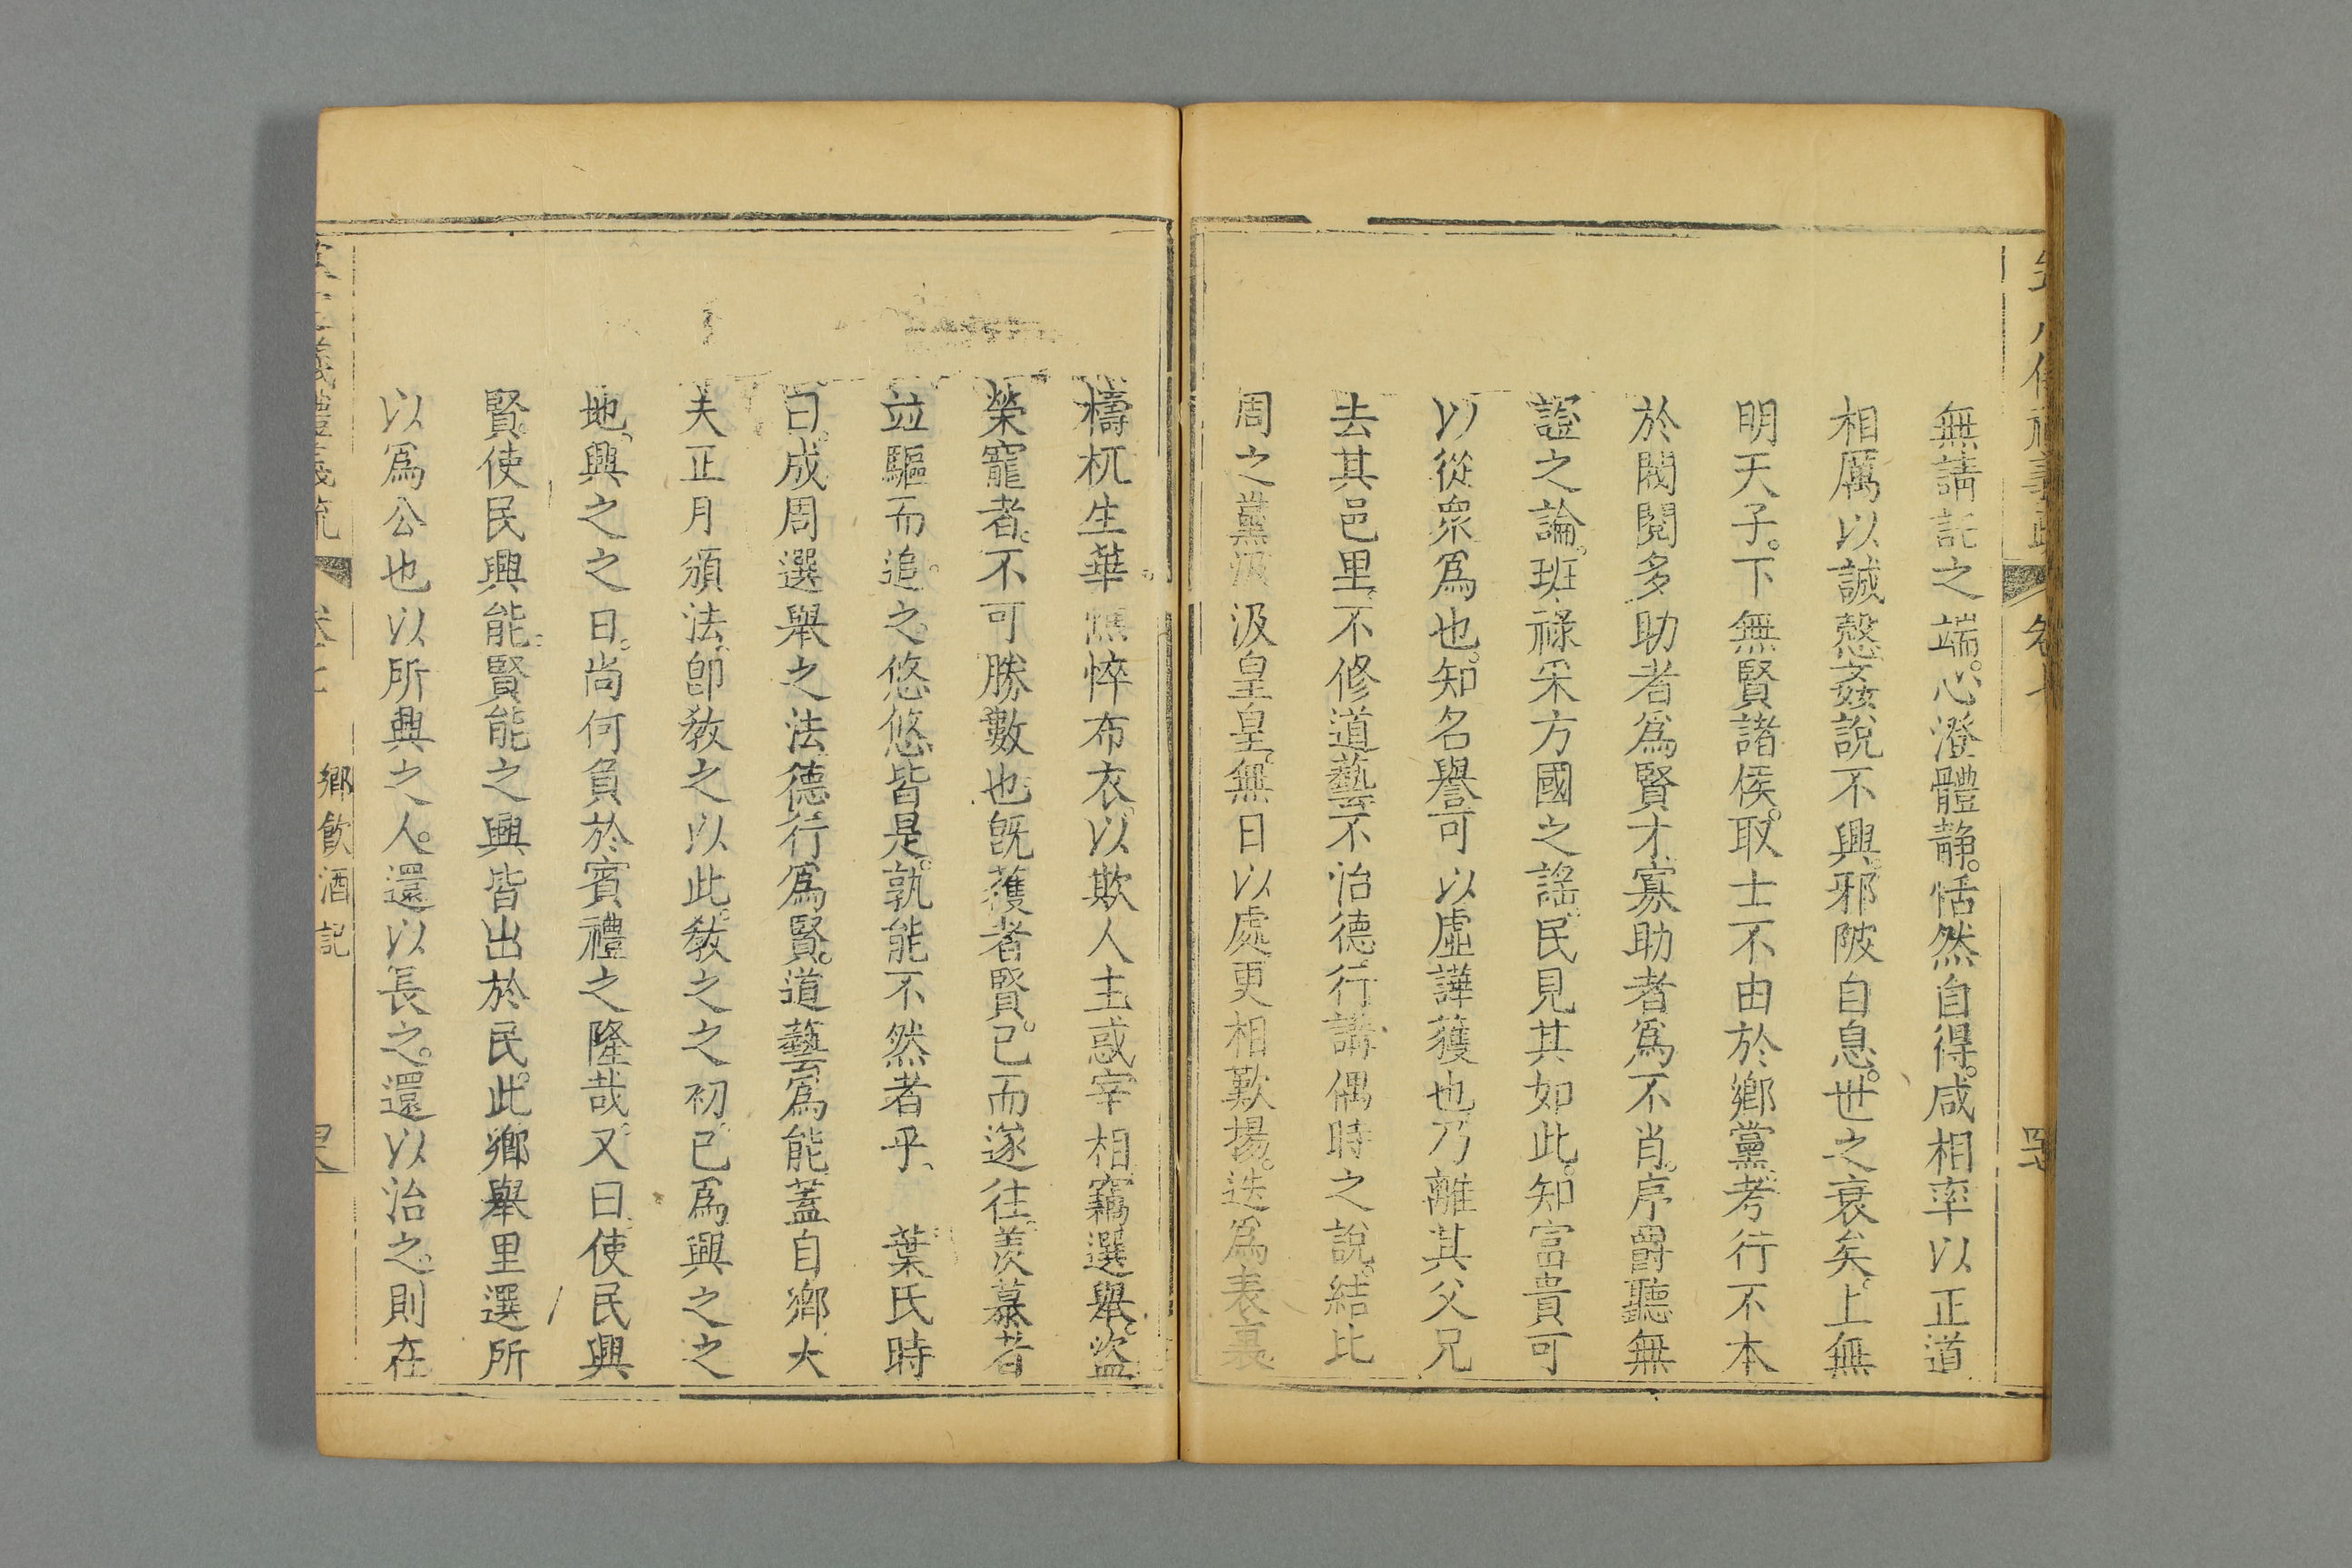 無請託之端。心澄體靜。恬然自得。咸相率以正道
相厲以誠慤。姦說不興。邪陂自息。世之衰矣。上無
明天子。下無賢諸侯。取士不由於鄉黨。考行不本
於閥閱。多助者爲賢才。寡助者爲不肖。序爵聽無
證之論。班祿采方國之謠。民見其如此。知富貴可
以從衆爲也。知名譽可以虛譁獲也。乃離其父兄
去其邑里。不修道藝。不治德行。講偶時之說。結比
周之黨。汲汲皇皇。無日以處。更相歎揚。迭爲表裏
檮杌生華。憔悴布衣。以欺人主惑宰相竊選舉。盜
榮寵者。不可勝數也。旣獲者賢。已而遂往。羨慕者
竝驅而追。之。悠悠皆是。孰能不然者乎。 葉氏時
曰。成周選舉之法。德行爲賢。道藝爲能。蓋自鄉大
夫正月頒法。卽敎之以此。敎之之初。已爲興之之
地。興之之日。尚何負於賓禮之隆哉。又曰。使民興
賢。使民興能。賢能之興皆出於民。此鄉舉里選所
以爲公也。以所興之人。還以長之。還以治之。則在
鄉飮酒記